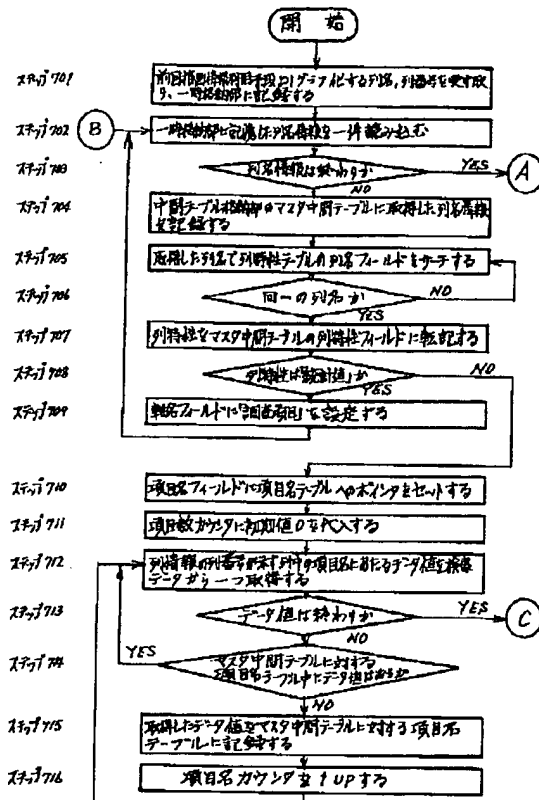 開始
ステップ701
グラフ化する列名,列番号を受け取
り、一時格納部に記録する
ステップ702
B
一時格納部に記憶した列名情報を一件読み込む
ステップ703
列名情報は終わりか
YES
A
NO
ステップ704
中間テーブル格納部のマスタ中間テーブルに取得した列名情報
を記録する
ステップ705
取得した列名で列特性テーブルの列名フィールドをサーチする
ステップ706
同一の列名か
NO
YES
ステップ707
列特性をマスタ中間テーブルの列特性フィールドに転記する
ステップ708
列特性は「統計値」か
NO
YES
ステップ709
軸名フィールドに「調査項目」を設定する
ステップ710
項目名フィールドに項目名テーブルへのポインタをセットする
ステップ711
項目数カウンタに初期値0を代入する
ステップ712
列情報の列番号が示す列中の項目名にあたるデータ値を検索
データから一つ取得する
ステップ713
データ値は終わりか
YES
C
YES
NO
ステップ714
マスタ中間テーブルに対する
項目名テーブル中にデータ値はあるか
NO
ステップ715
取得したデータ値をマスタ中間テーブルに対する項目名
テーブルに記録する
ステップ716
項目名カウンタを1UPする